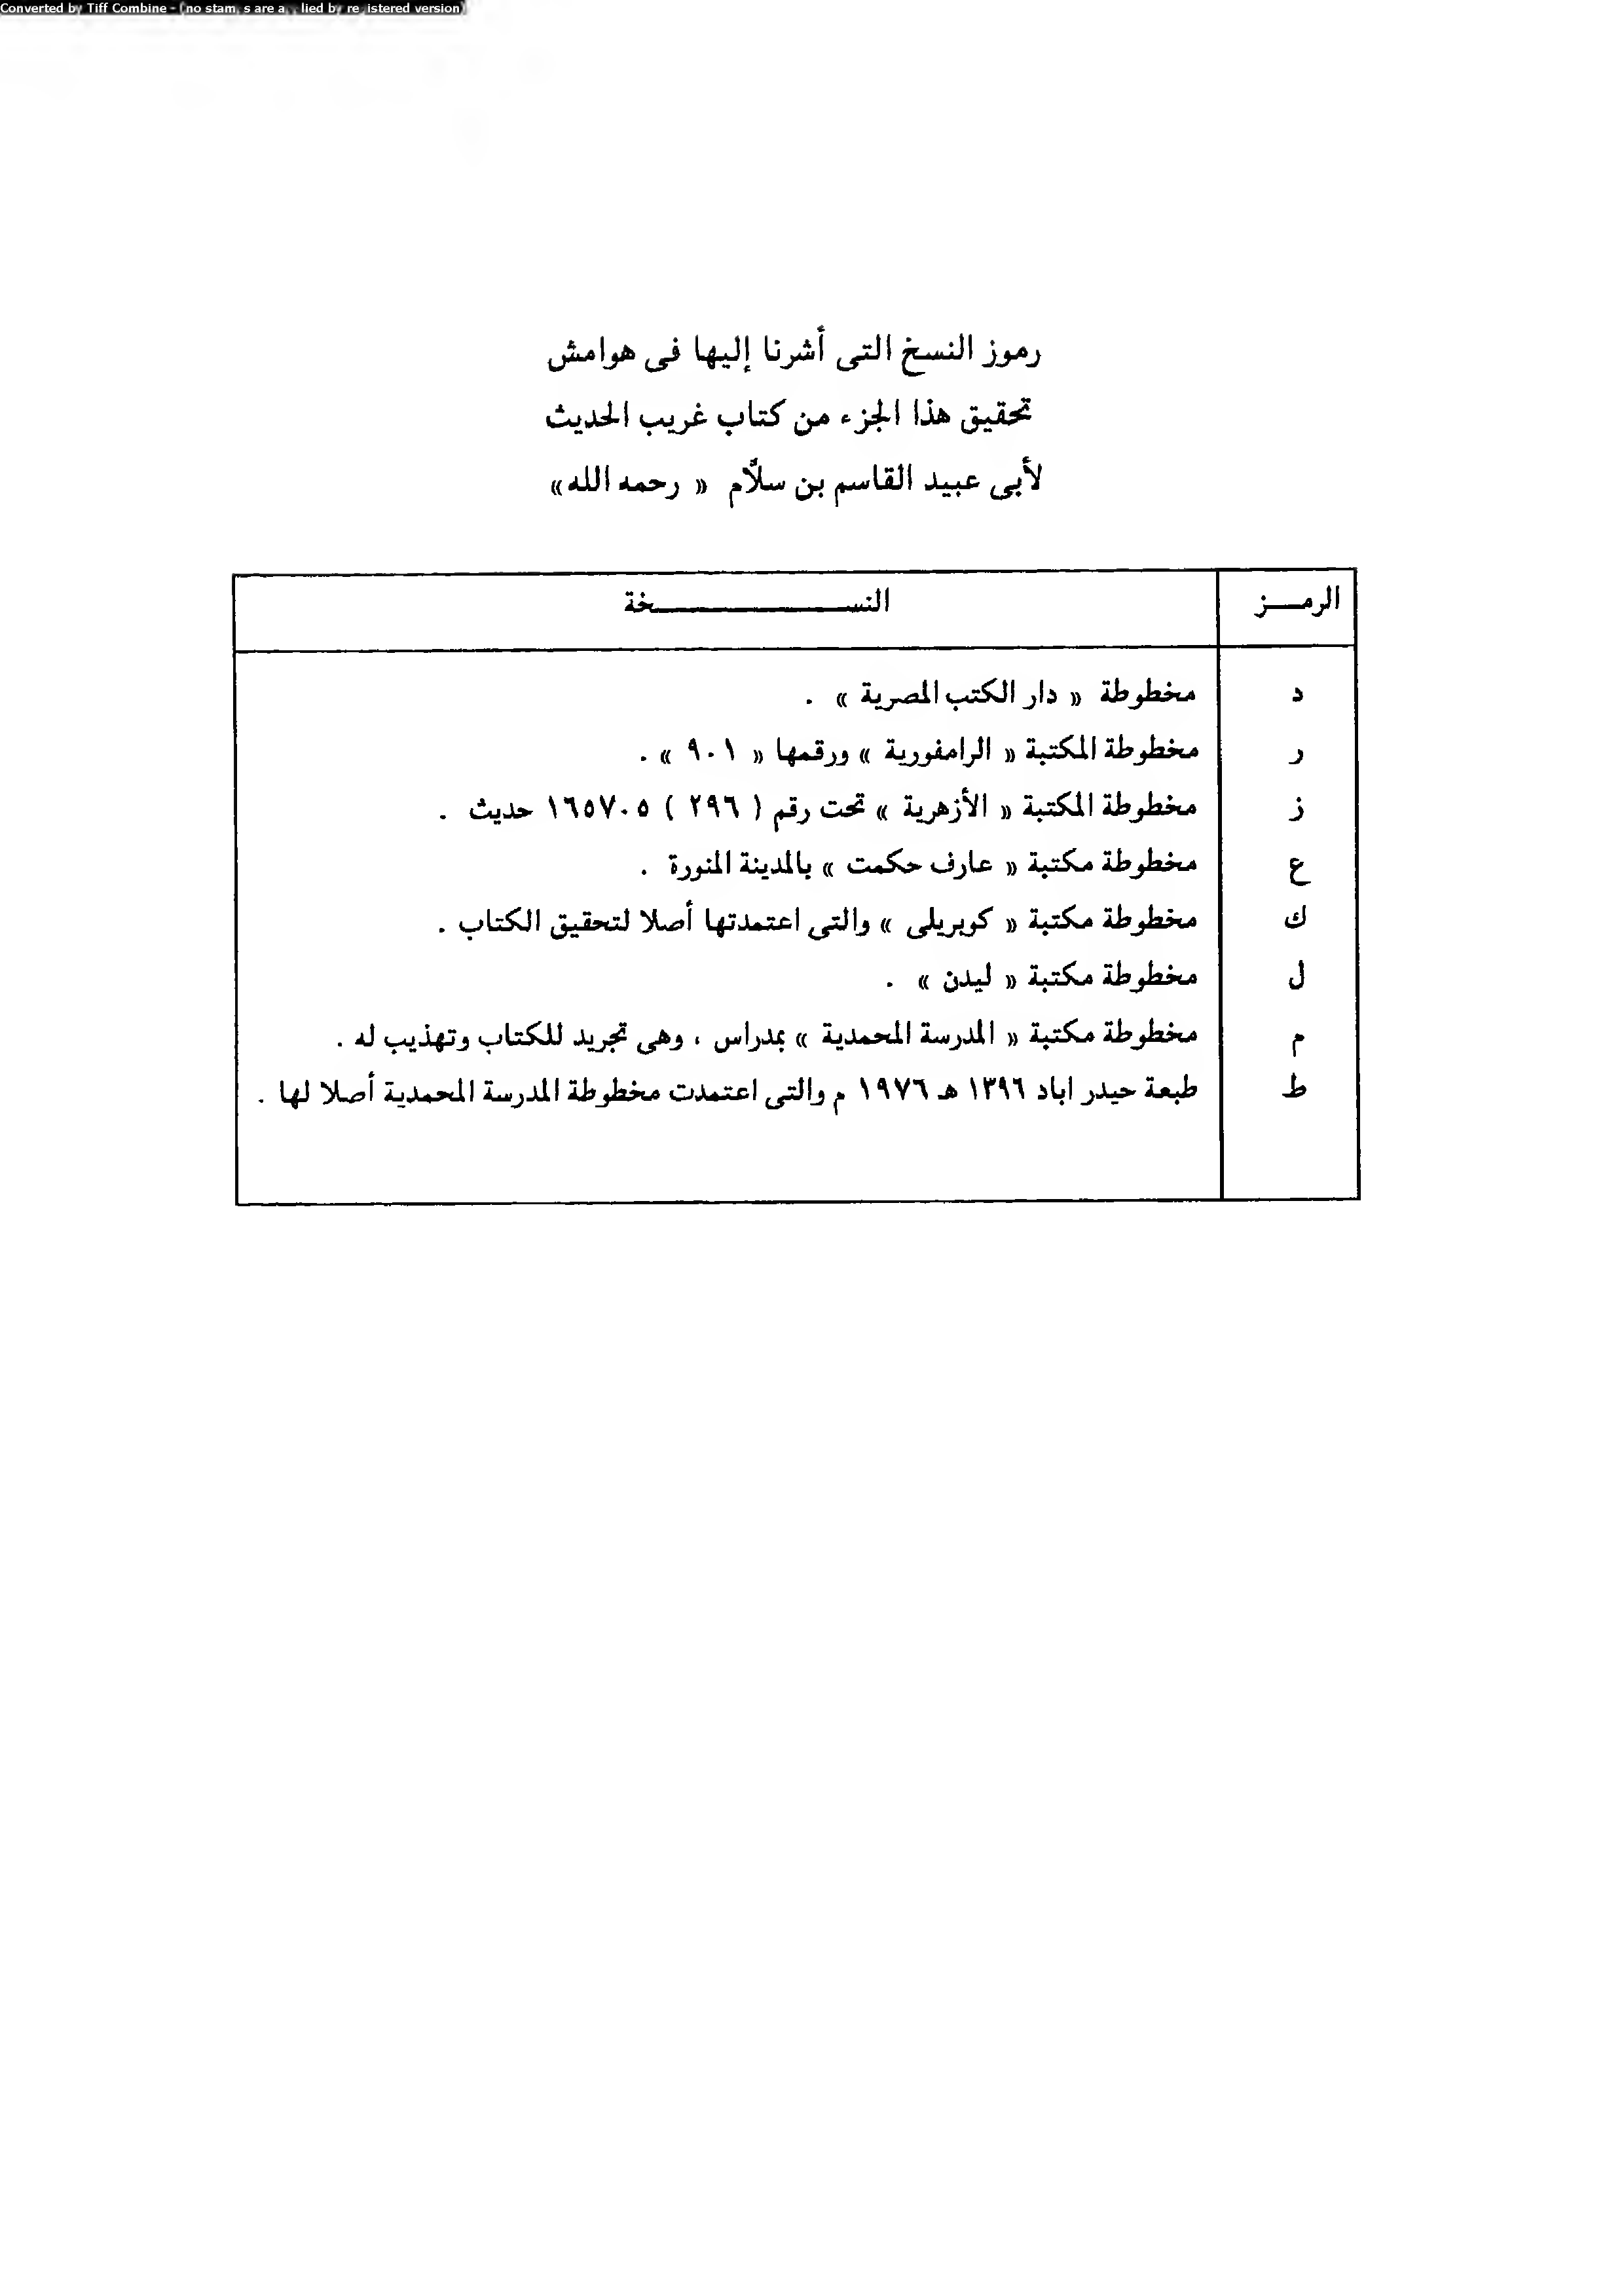 Converted by Tiff Combine - (no stamps are applied by registered version)
رموز النسخ التى أشرنا إليها فى هوامش
تحقيق هذا الجزء من كتاب غريب الحديث
لأبى عبيد القاسم بن سلاَّم « رحمه الله»
الرمـــز النســـــــــــــــــخة
د مخطوطة « دار الكتب المصرية » .
ر مخطوطة المكتبة « الرامفورية » ورقمها « ٩٠١ » .
ز مخطوطة المكتبة « الأزهرية » تحت رقم ( ٢٩٦ ) ١٦٥٧٠٥ حديث .
ع مخطوطة مكتبة « عارف حكمت » بالمدينة المنورة .
ك مخطوطة مكتبة « كوبريلى » والتى اعتمدتها أصلا لتحقيق الكتاب .
ل مخطوطة مكتبة « ليدن » .
م مخطوطة مكتبة « المدرسة المحمدية » بمدراس ، وهى تجريد للكتاب وتهذيب له .
ط طبعة حيدر اباد ١٣٩٦ هـ ١٩٧٦ م والتى اعتمدت مخطوطة المدرسة المحمدية أصلا لها .